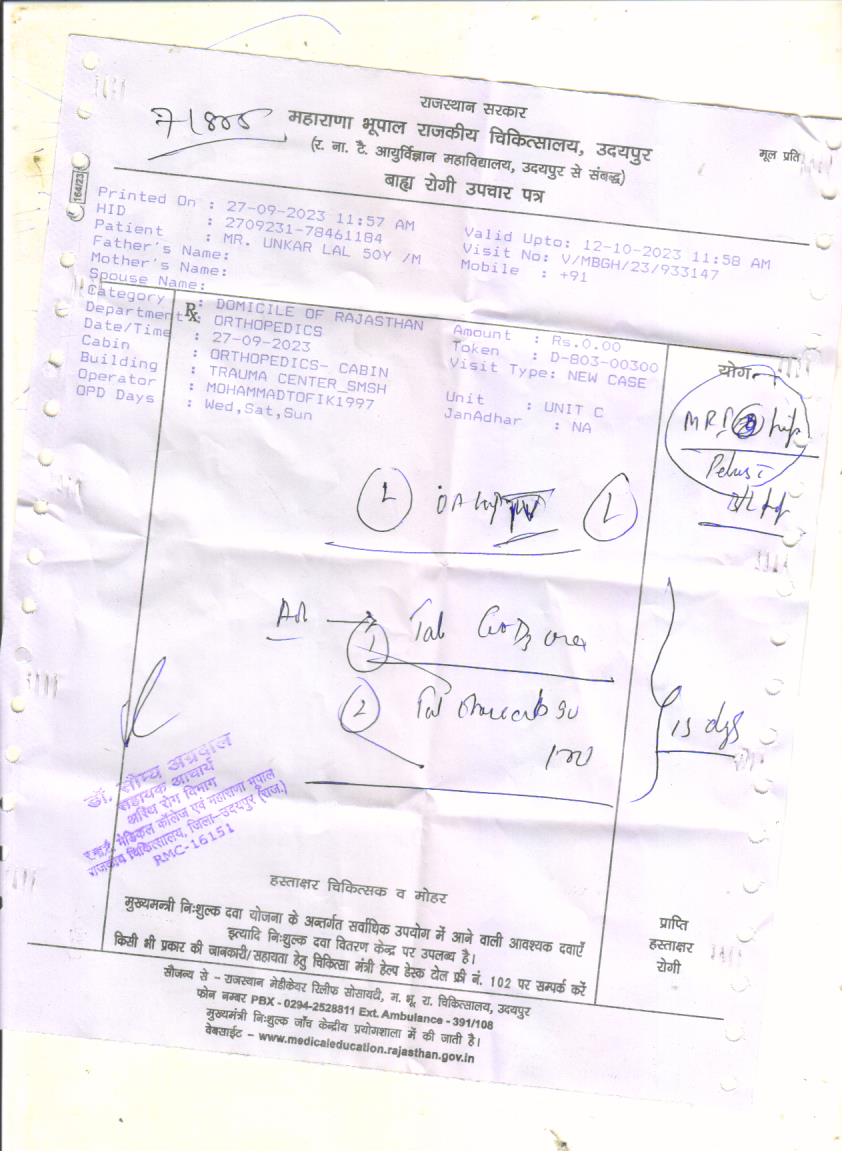 राजस्थान सरकार
71805
महाराणा भूपाल राजकीय चिकित्सालय, उदयपुर
मूल प्रति
(र. ना. टै. आयुर्विज्ञान महाविद्यालय, उदयपुर से संबद्ध)
बाह्य रोगी उपचार पत्र
164/23
Printed On : 27-09-2023 11:57 AM Valid Upto: 12-10-2023 11:58 AM
HID : 2709231-78461184 Visit No: V/MBGH/23/933147
Patient : MR. UNKAR LAL 50Y /M Mobile : +91
Father's Name:
Mother's Name:
Spouse Name:
Category : DOMICILE OF RAJASTHAN Amount : Rs.0.00
Department : ORTHOPEDICS Token : D-803-00300
Rx
Date/Time : 27-09-2023 Visit Type: NEW CASE
Cabin : ORTHOPEDICS- CABIN
Building : TRAUMA CENTER_SMSH Unit : UNIT C
Operator : MOHAMMADTOFIK1997 JanAdhar : NA
OPD Days : Wed,Sat,Sun
योग
MRI hip
Pelvis
L OA L
1 Tab D3
2 Tab
15 days
डॉ. सौम्य अग्रवाल
सहायक आचार्य
अस्थि रोग विभाग
मेडिकल कॉलेज एवं महाराणा भूपाल
राजकीय चिकित्सालय, जिला-उदयपुर (राज.)
RMC-16151
हस्ताक्षर चिकित्सक व मोहर
मुख्यमन्त्री निःशुल्क दवा योजना के अन्तर्गत सर्वाधिक उपयोग में आने वाली आवश्यक दवाएँ
इत्यादि निःशुल्क दवा वितरण केन्द्र पर उपलब्ध है।
किसी भी प्रकार की जानकारी/सहायता हेतु चिकित्सा मंत्री हेल्प डेस्क टोल फ्री नं. 102 पर सम्पर्क करें
प्राप्ति
हस्ताक्षर
रोगी
सौजन्य से - राजस्थान मेडीकेयर रिलीफ सोसायटी, म. भू. रा. चिकित्सालय, उदयपुर
फोन नम्बर PBX - 0294-2528811 Ext. Ambulance - 391/108
मुख्यमंत्री निःशुल्क जाँच केन्द्रीय प्रयोगशाला में की जाती है।
वेबसाईट - www.medicaleducation.rajasthan.gov.in